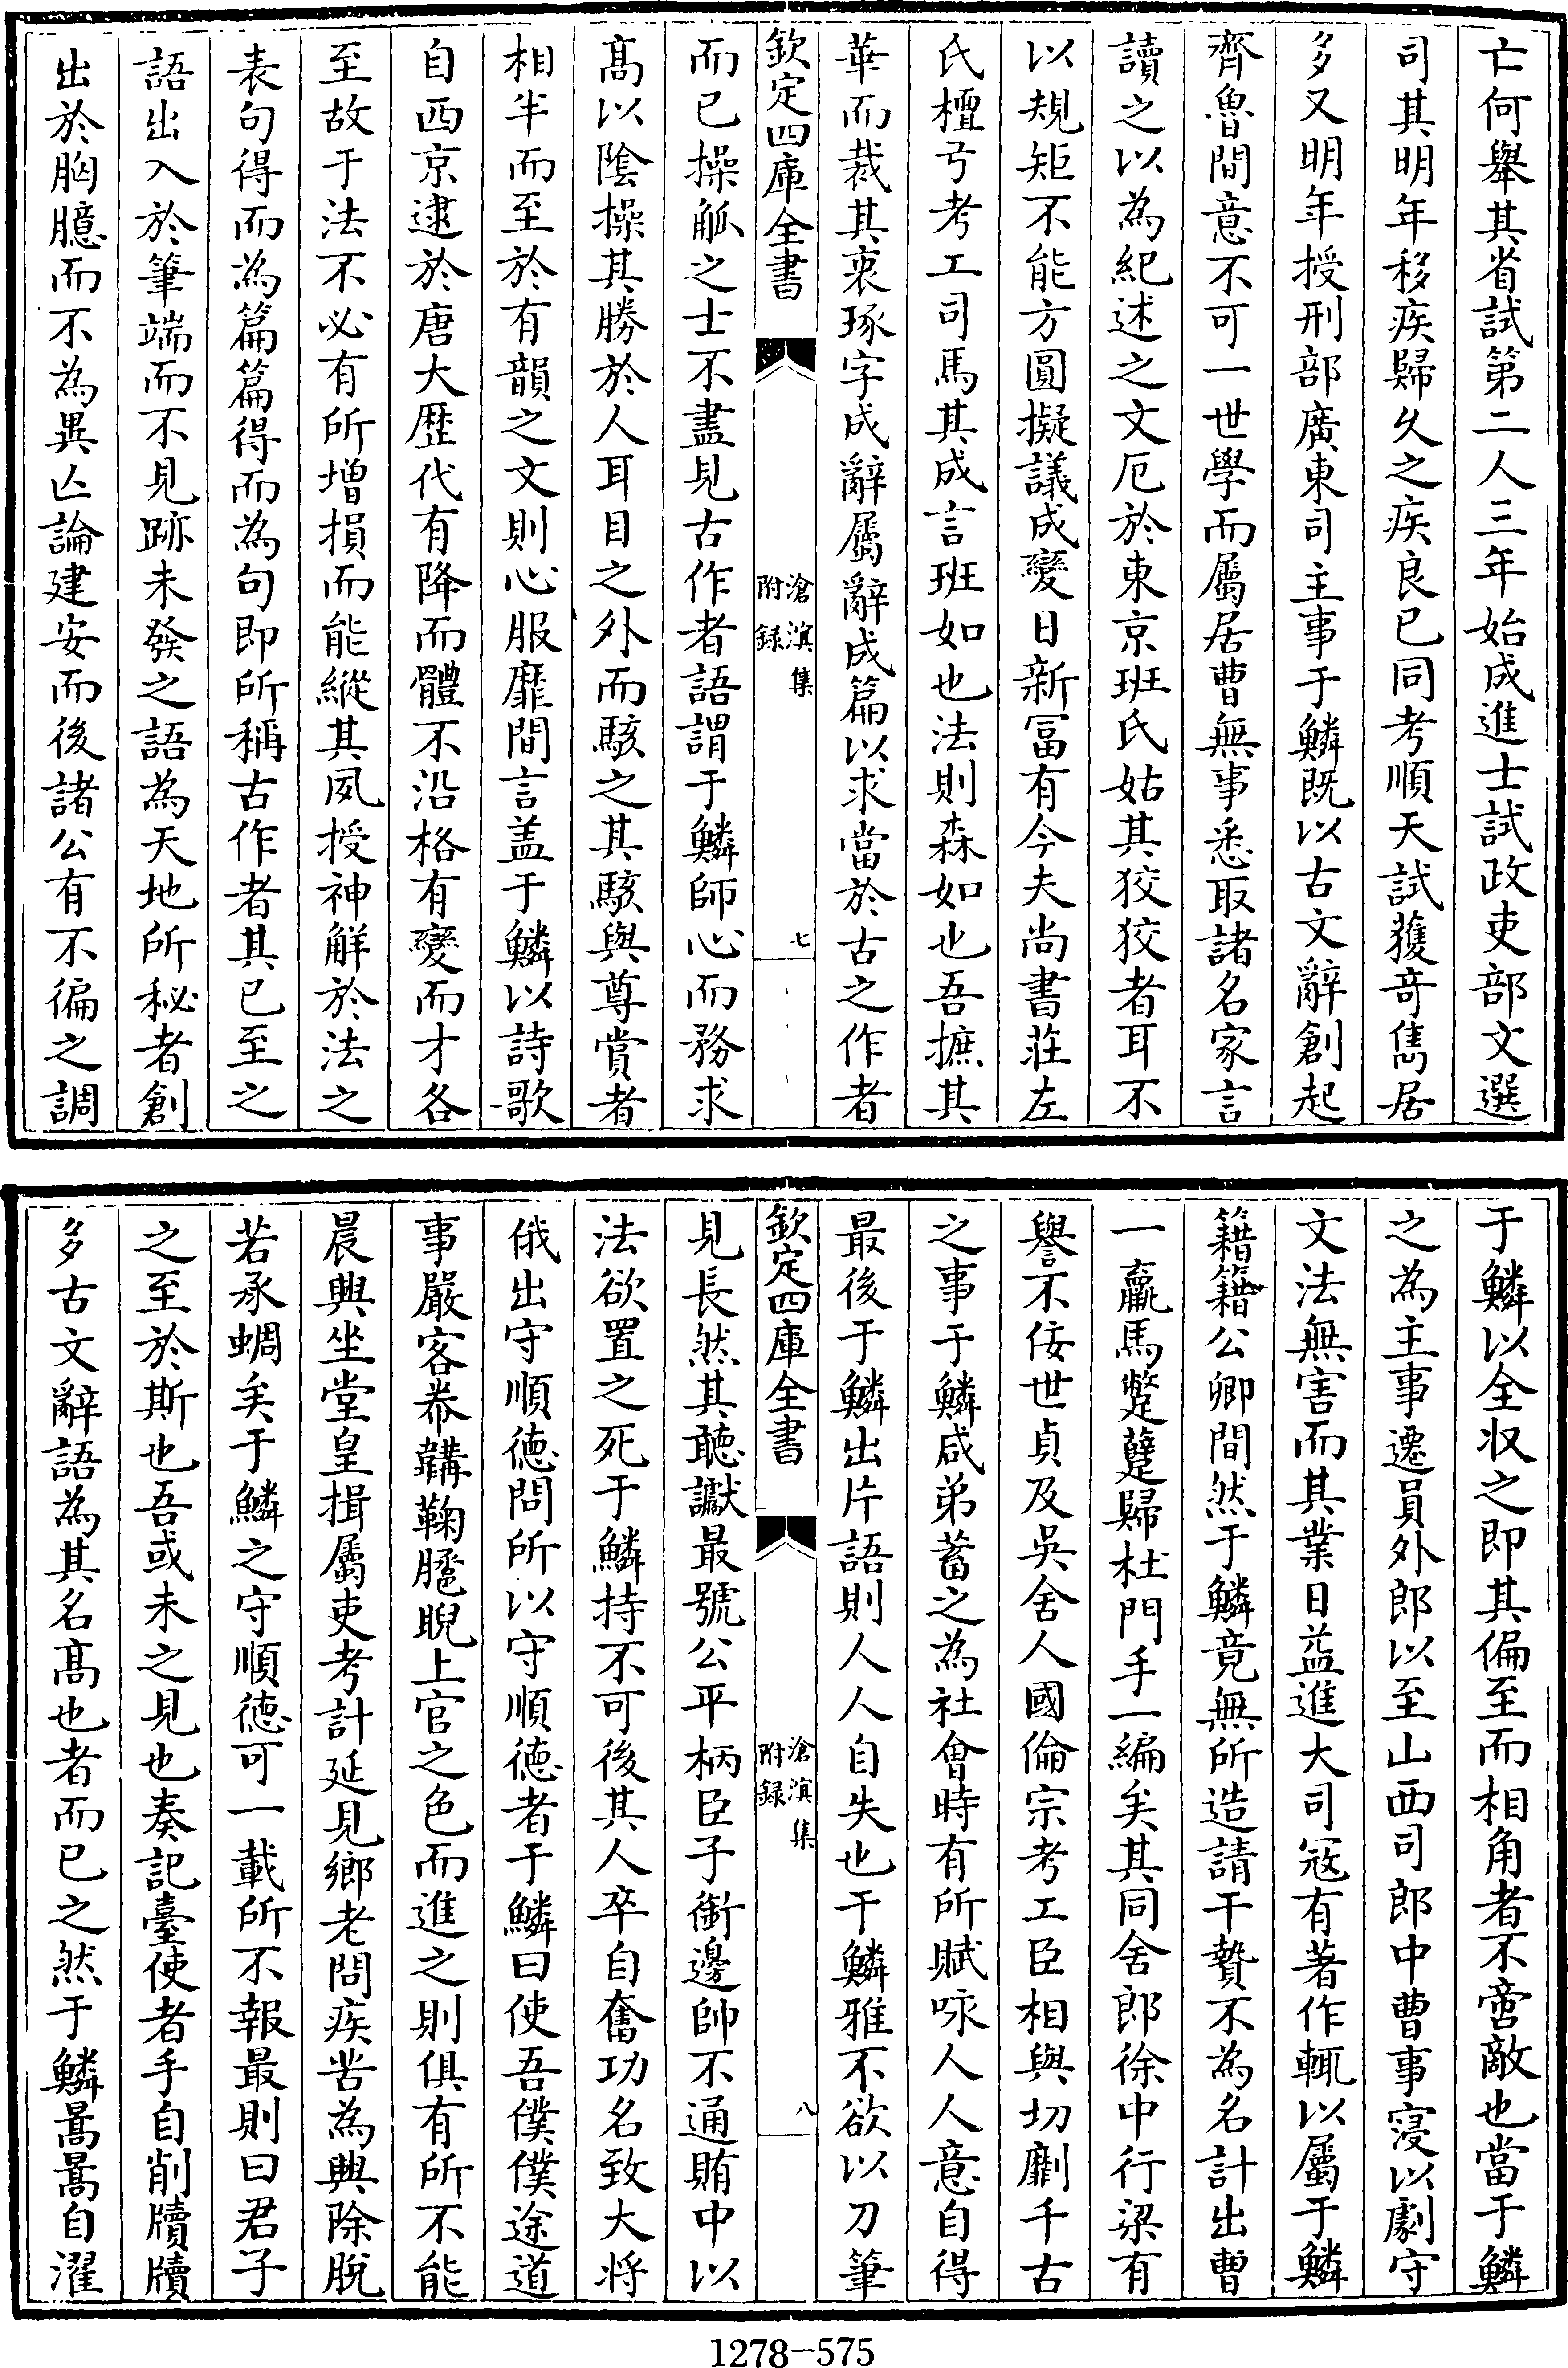 亡何舉其省試第二人三年始成進士試政吏部文選
司其明年移疾歸久之疾良已同考順天試獲竒雋居
多又明年授刑部廣東司主事于鱗既以古文辭創起
齊魯間意不可一世學而屬居曹無事悉取諸名家言
讀之以為紀述之文厄於東京班氏姑其狡狡者耳不
以規矩不能方圓擬議成變日新冨有今夫尚書莊左
氏檀弓考工司馬其成言班如也法則森如也吾摭其
華而裁其衷琢字成辭屬辭成篇以求當於古之作者
欽定四庫全書
滄溟集
附録
七
而已操觚之士不盡見古作者語謂于鱗師心而務求
髙以陰操其勝於人耳目之外而駭之其駭與尊賞者
相半而至於有韻之文則心服靡間言盖于鱗以詩歌
自西京逮於唐大歴代有降而體不沿格有變而才各
至故于法不必有所增損而能縱其夙授神解於法之
表句得而為篇篇得而為句即所稱古作者其已至之
語出入於筆端而不見跡未發之語為天地所秘者創
出於胸臆而不為異亾論建安而後諸公有不徧之調
于鱗以全収之即其偏至而相角者不啻敵也當于鱗
之為主事遷員外郎以至山西司郎中曹事寖以劇守
文法無害而其業日益進大司冦有著作輒以屬于鱗
籍籍公卿間然于鱗竟無所造請干贄不為名計出曹
一羸馬蹩躠歸杜門手一編矣其同舍郎徐中行梁有
譽不佞世貞及吳舍人國倫宗考工臣相與切劘千古
之事于鱗咸弟蓄之為社會時有所賦咏人人意自得
最後于鱗出片語則人人自失也于鱗雅不欲以刀筆
欽定四庫全書
滄溟集
附録
八
見長然其聴讞最號公平柄臣子銜邊帥不通賄中以
法欲置之死于鱗持不可後其人卒自奮功名致大将
俄出守順徳問所以守順徳者于鱗曰使吾僕僕途道
事嚴客帣鞲鞠䠆睨上官之色而進之則俱有所不能
晨興坐堂皇揖屬吏考計延見鄉老問疾苦為興除脫
若承蜩矣于鱗之守順徳可一載所不報最則曰君子
之至於斯也吾或未之見也奏記臺使者手自削牘牘
多古文辭語為其名髙也者而已之然于鱗暠暠自濯
1278-575